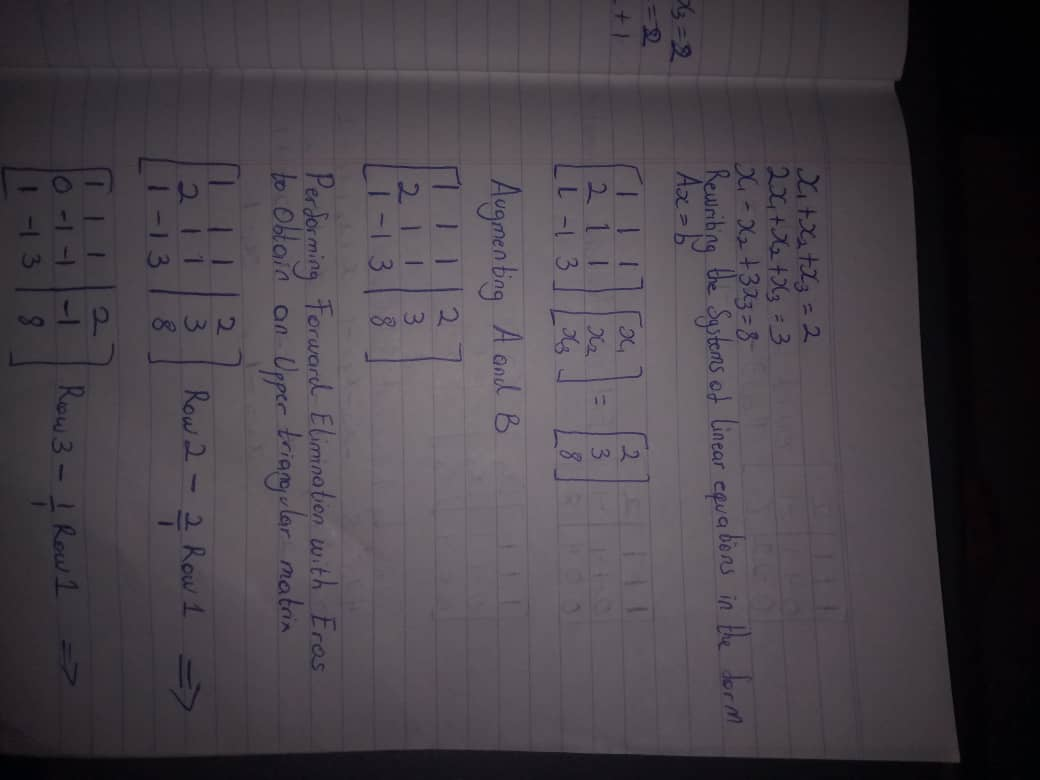 x3 = 2
= 2
+ 1
x1 + x2 + x3 = 2
2x1 + x2 + x3 = 3
x1 - x2 + 3x3 = 8
Rewriting the Systems of linear equations in the form
Ax = b
[1 1 1] [x1] [2]
[2 1 1] [x2] = [3]
[1 -1 3] [x3] [8]
Augmenting A and B
[1 1 1 | 2]
[2 1 1 | 3]
[1 -1 3 | 8]
Performing Forward Elimination with Eros
to Obtain an Upper triangular matrix
[1 1 1 | 2]
[2 1 1 | 3] Row 2 - 2/1 Row 1 ⇒
[1 -1 3 | 8]
[1 1 1 | 2]
[0 -1 -1 | -1] Row 3 - 1/1 Row 1 ⇒
[1 -1 3 | 8]